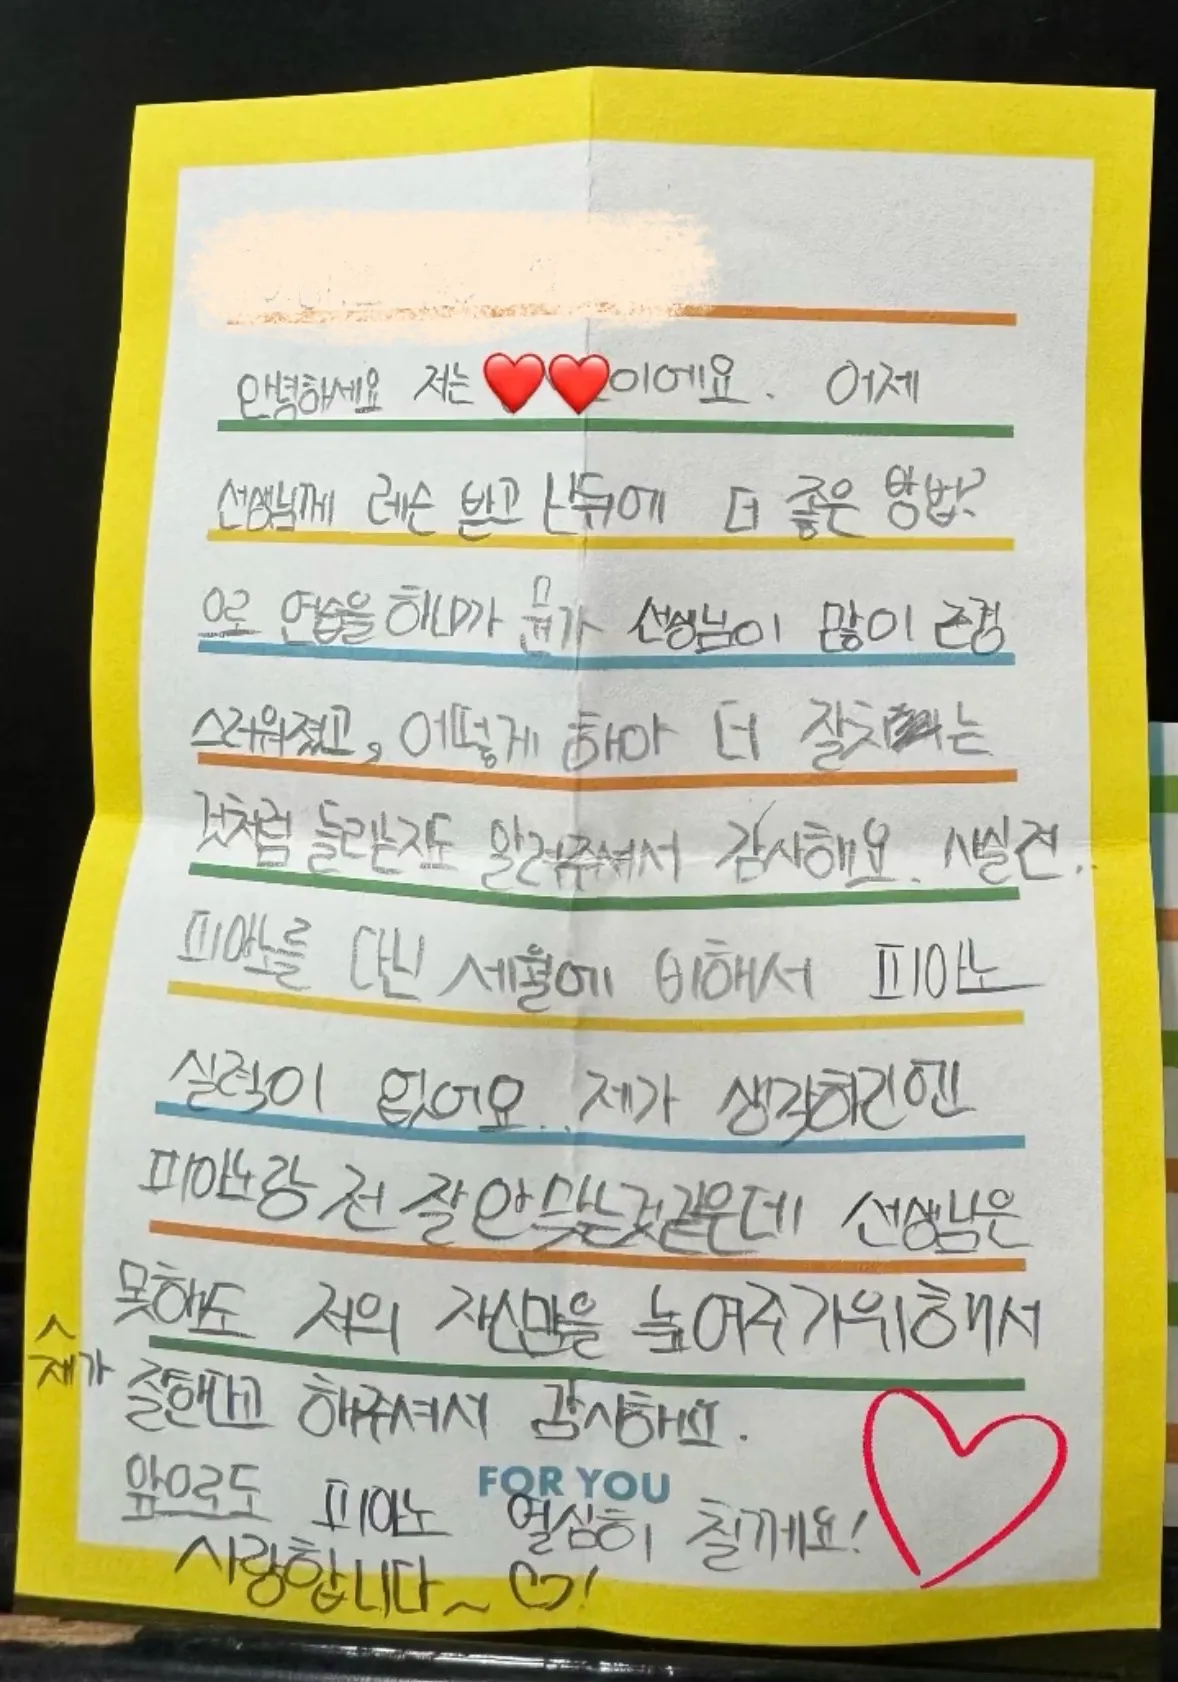 안녕하세요 저는 이에요. 어제
선생님께 레슨 받고 난뒤에 더 좋은 방법?
으로 연습을 하니까 뭔가 선생님이 많이 존경
스러워졌고, 어떻게 해야 더 잘치는
것처럼 들리는지도 알려주셔서 감사해요. 사실 전..
피아노를 다닌 세월에 비해서 피아노
실력이 없어요.. 제가 생각하긴엔
피아노랑 전 잘 안 맞는것같은데 선생님은
못해도 저의 자신감을 높여주기위해서
제가 잘한다고 해주셔서 감사해요.
FOR YOU
앞으로도 피아노 열심히 칠께요!
사랑합니다~ ♡!